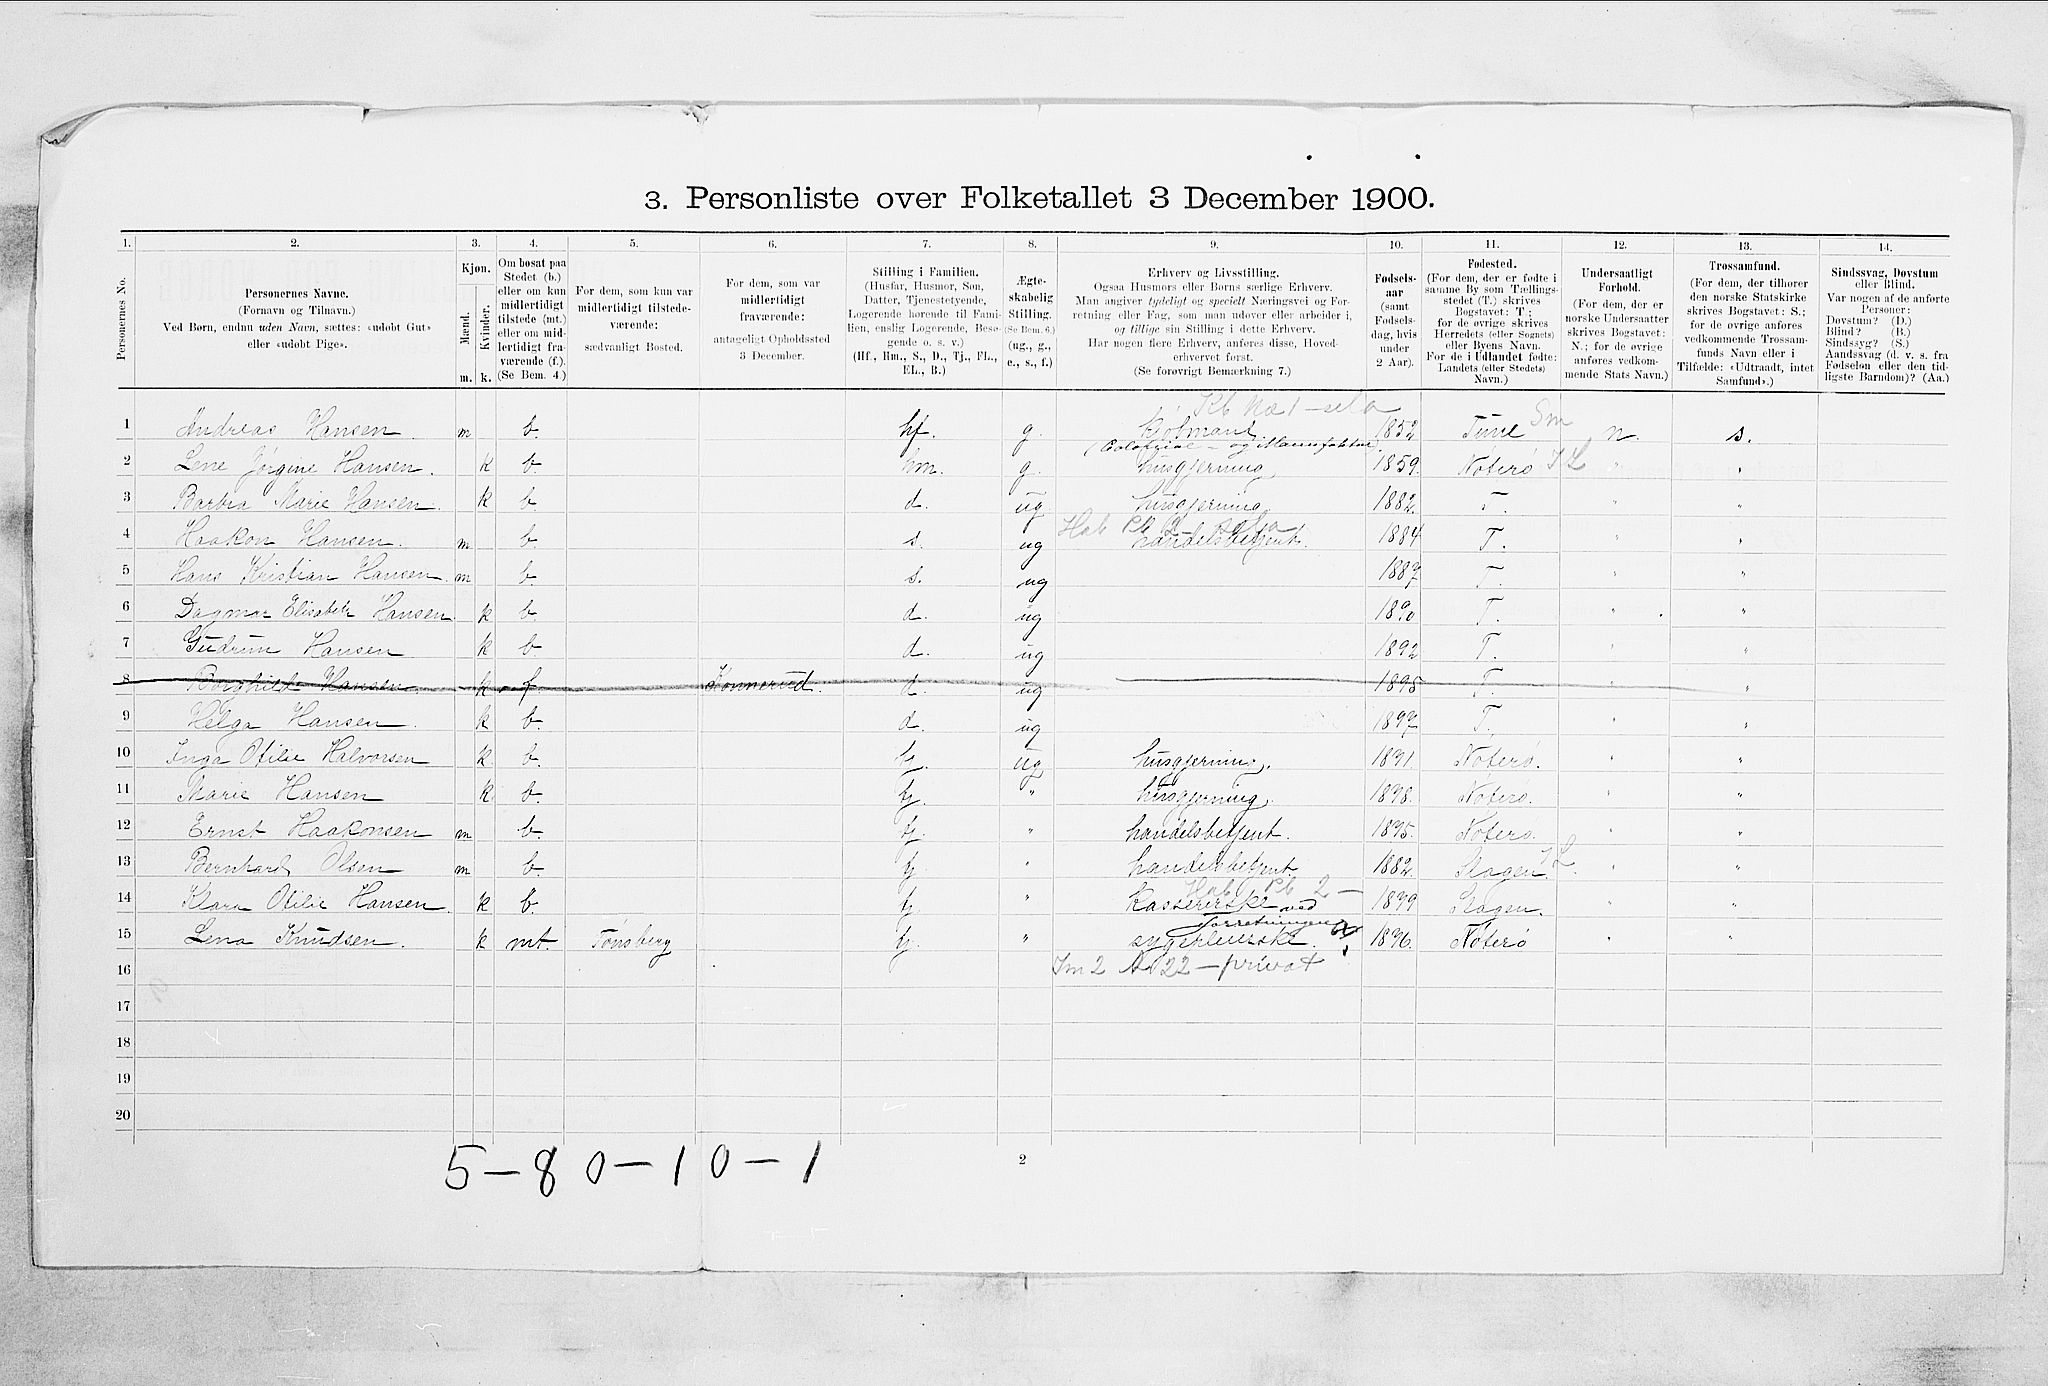 3. Personliste over Folketallet 3 December 1900.
1. 2. 3. 4. 5. 6. 7. 8. 9. 10. 11. 12. 13. 14.
Personernes No.
Personernes Navne.
(Fornavn og Tilnavn.)
Ved Børn, endnu uden Navn, sættes: «udøbt Gut»
eller «udøbt Pige».
Kjøn.
Mænd. Kvinder.
m. k.
Om bosat paa
Stedet (b.)
eller om kun
midlertidigt
tilstede (mt.)
eller om mid-
lertidigt fra-
værende (f.).
(Se Bem. 4.)
For dem, som kun var
midlertidigt tilstede-
værende:
sædvanligt Bosted.
For dem, som var
midlertidigt
fraværende:
antageligt Opholdssted
3 December.
Stilling i Familien.
(Husfar, Husmor, Søn,
Datter, Tjenestetyende,
Logerende hørende til Fami-
lien, enslig Logerende, Besø-
gende o. s. v.)
(Hf., Hm., S., D., Tj., FL.,
EL., B.)
Ægte-
skabelig
Stilling.
(Se Bem. 6.)
(ug., g.,
e., s., f.)
Erhverv og Livsstilling.
Ogsaa Husmors eller Børns særlige Erhverv.
Man angiver tydeligt og specielt Næringsvei og For-
retning eller Fag, som man udøver eller arbeider i,
og tillige sin Stilling i dette Erhverv.
Har nogen flere Erhverv, anføres disse, Hoved-
erhvervet først.
(Se forøvrigt Bemærkning 7.)
Fødsels-
aar
(samt
Fødsels-
dag, hvis
under
2 Aar).
Fødested.
(For dem, der er fødte i
samme By som Tællings-
stedet (T.) skrives
Bogstavet: T;
for de øvrige skrives
Herredets (eller Sognets)
eller Byens Navn.
For de i Udlandet fødte:
Landets (eller Stedets)
Navn.)
Undersaatligt
Forhold.
(For dem, der er
norske Undersaatter
skrives Bogstavet:
N.; for de øvrige
anføres vedkom-
mende Stats Navn.)
Trossamfund.
(For dem, der tilhører
den norske Statskirke
skrives Bogstavet: S.;
for de øvrige anføres
vedkommende Trossam-
funds Navn eller i
Tilfælde: «Udtraadt, intet
Samfund».)
Sindssvag, Døvstum
eller Blind.
Var nogen af de anførte
Personer:
Døvstum? (D.)
Blind? (B.)
Sindssyg? (S.)
Aandssvag (d. v. s. fra
Fødselen eller den tid-
ligste Barndom)? (Aa.)
1 Andreas Hansen. m b. hf. g. Kjøbmand 1852 Tune Sm n. s.
2 Lene Jørgine Hansen. k b. hm. g. husgjerning 1859. Nøterø " "
3 Barbra Marie Hansen. k b. d. ug husgjerning 1882. T. " "
4 Haakon Hansen. m b. s. ug handelsbetjent. 1884 T. " "
5 Hans Kristian Hansen. m b. s. ug 1887 T. " "
6 Dagmar Elisabeth Hansen. k b. d. ug 1890 T. " "
7 Gudrun Hansen k b. d. ug 1892 T. " "
8 Borghild Hansen k f. Konnerud. d. ug 1895 T. " "
9 Helga Hansen. k b. d. ug 1897 T. " "
10 Inga Otilie Halvorsen k. b. tj. ug husgjerning. Nøterø. " "
11 Marie Hansen k. b. tj. " husgjerning. Nøterø. " "
12 Ernst Haakonsen m b. tj. " handelsbetjent. Nøterø. " "
13 Bernhard Olsen m b. tj. " handelsbetjent 1882. Slagen. " "
14 Klara Otilie Hansen. k b. tj. " Kassererske ved 1879 Slagen. " "
forretningen
15 Lena Knudsen. k mt. Tønsberg tj. " sygepleierske. Nøterø " "
16 22 – privat
17
18
19
20
5 – 8 0 – 1 0 – 1
2